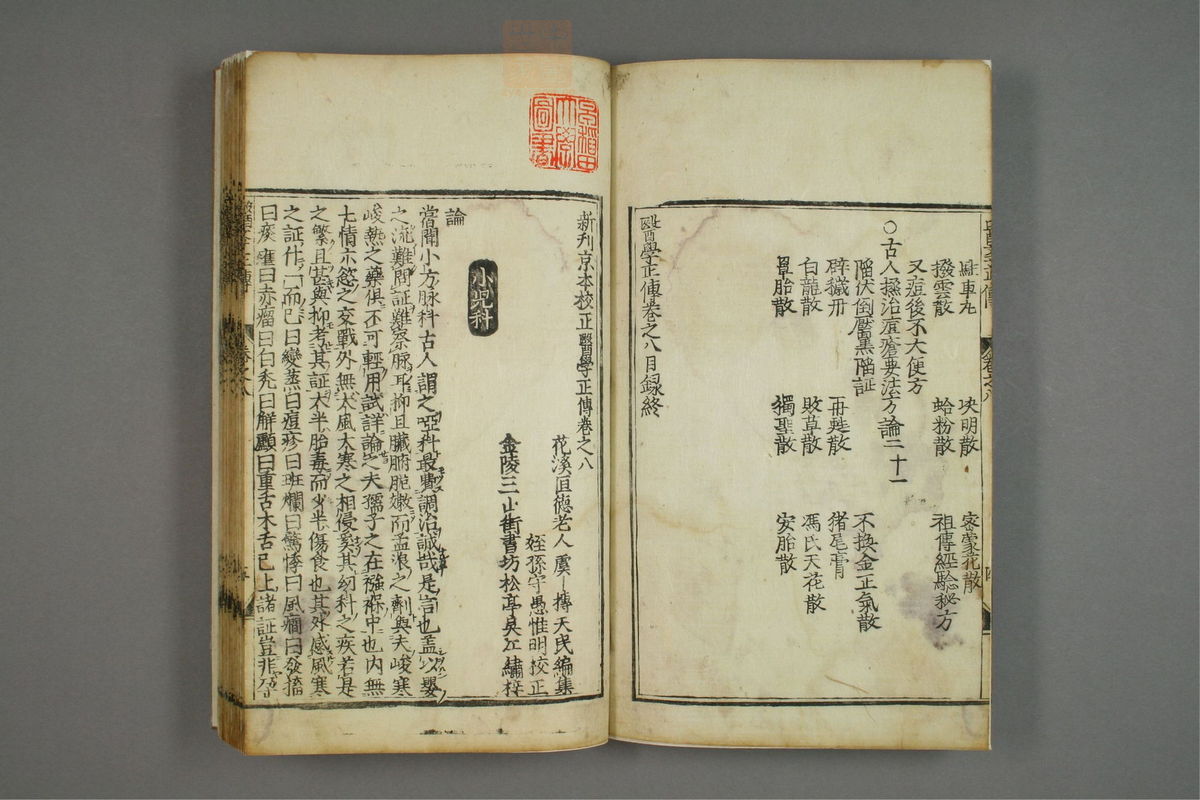 駐車丸 決明散 密蒙花散
撥雲散 蛤粉散 祖傳經驗秘方
又痘後不大便方
○古人撮治痘瘡要法方論二十一
陷伏倒黶黑陷証 不換金正氣散
辟穢丹 再甦散 猪尾膏
白龍散 敗草散 馮氏天花散
單胎散 獨聖散 安胎散
醫學正傳卷之八目録終
早稲田大學圖書
新刋京本校正醫學正傳卷之八
花溪恒德老人虞 摶天民編集
姪孫守愚惟明校正
金陵三山街書坊松亭吳江繡梓
小兒科
論
嘗聞小方脉科古人謂之啞科最費調治誠哉是言也盖以嬰
之流難問証難察脉耳抑且臟腑脆嫩而孟浪之劑與夫峻寒
峻熱之藥俱不可輕用試詳論之夫孺子之在襁褓中也内無
七情六慾之交戰外無大風大寒之相侵奚其幼科之疾若是
之繁且甚與抑考其証大半胎毒而少半傷食也其外感風寒
之証什一而已曰變蒸曰痘疹曰斑爛曰驚悸曰風癎曰發搐
曰痰壅曰赤瘤曰白禿曰解顱曰重舌木舌已上諸証豈非孕